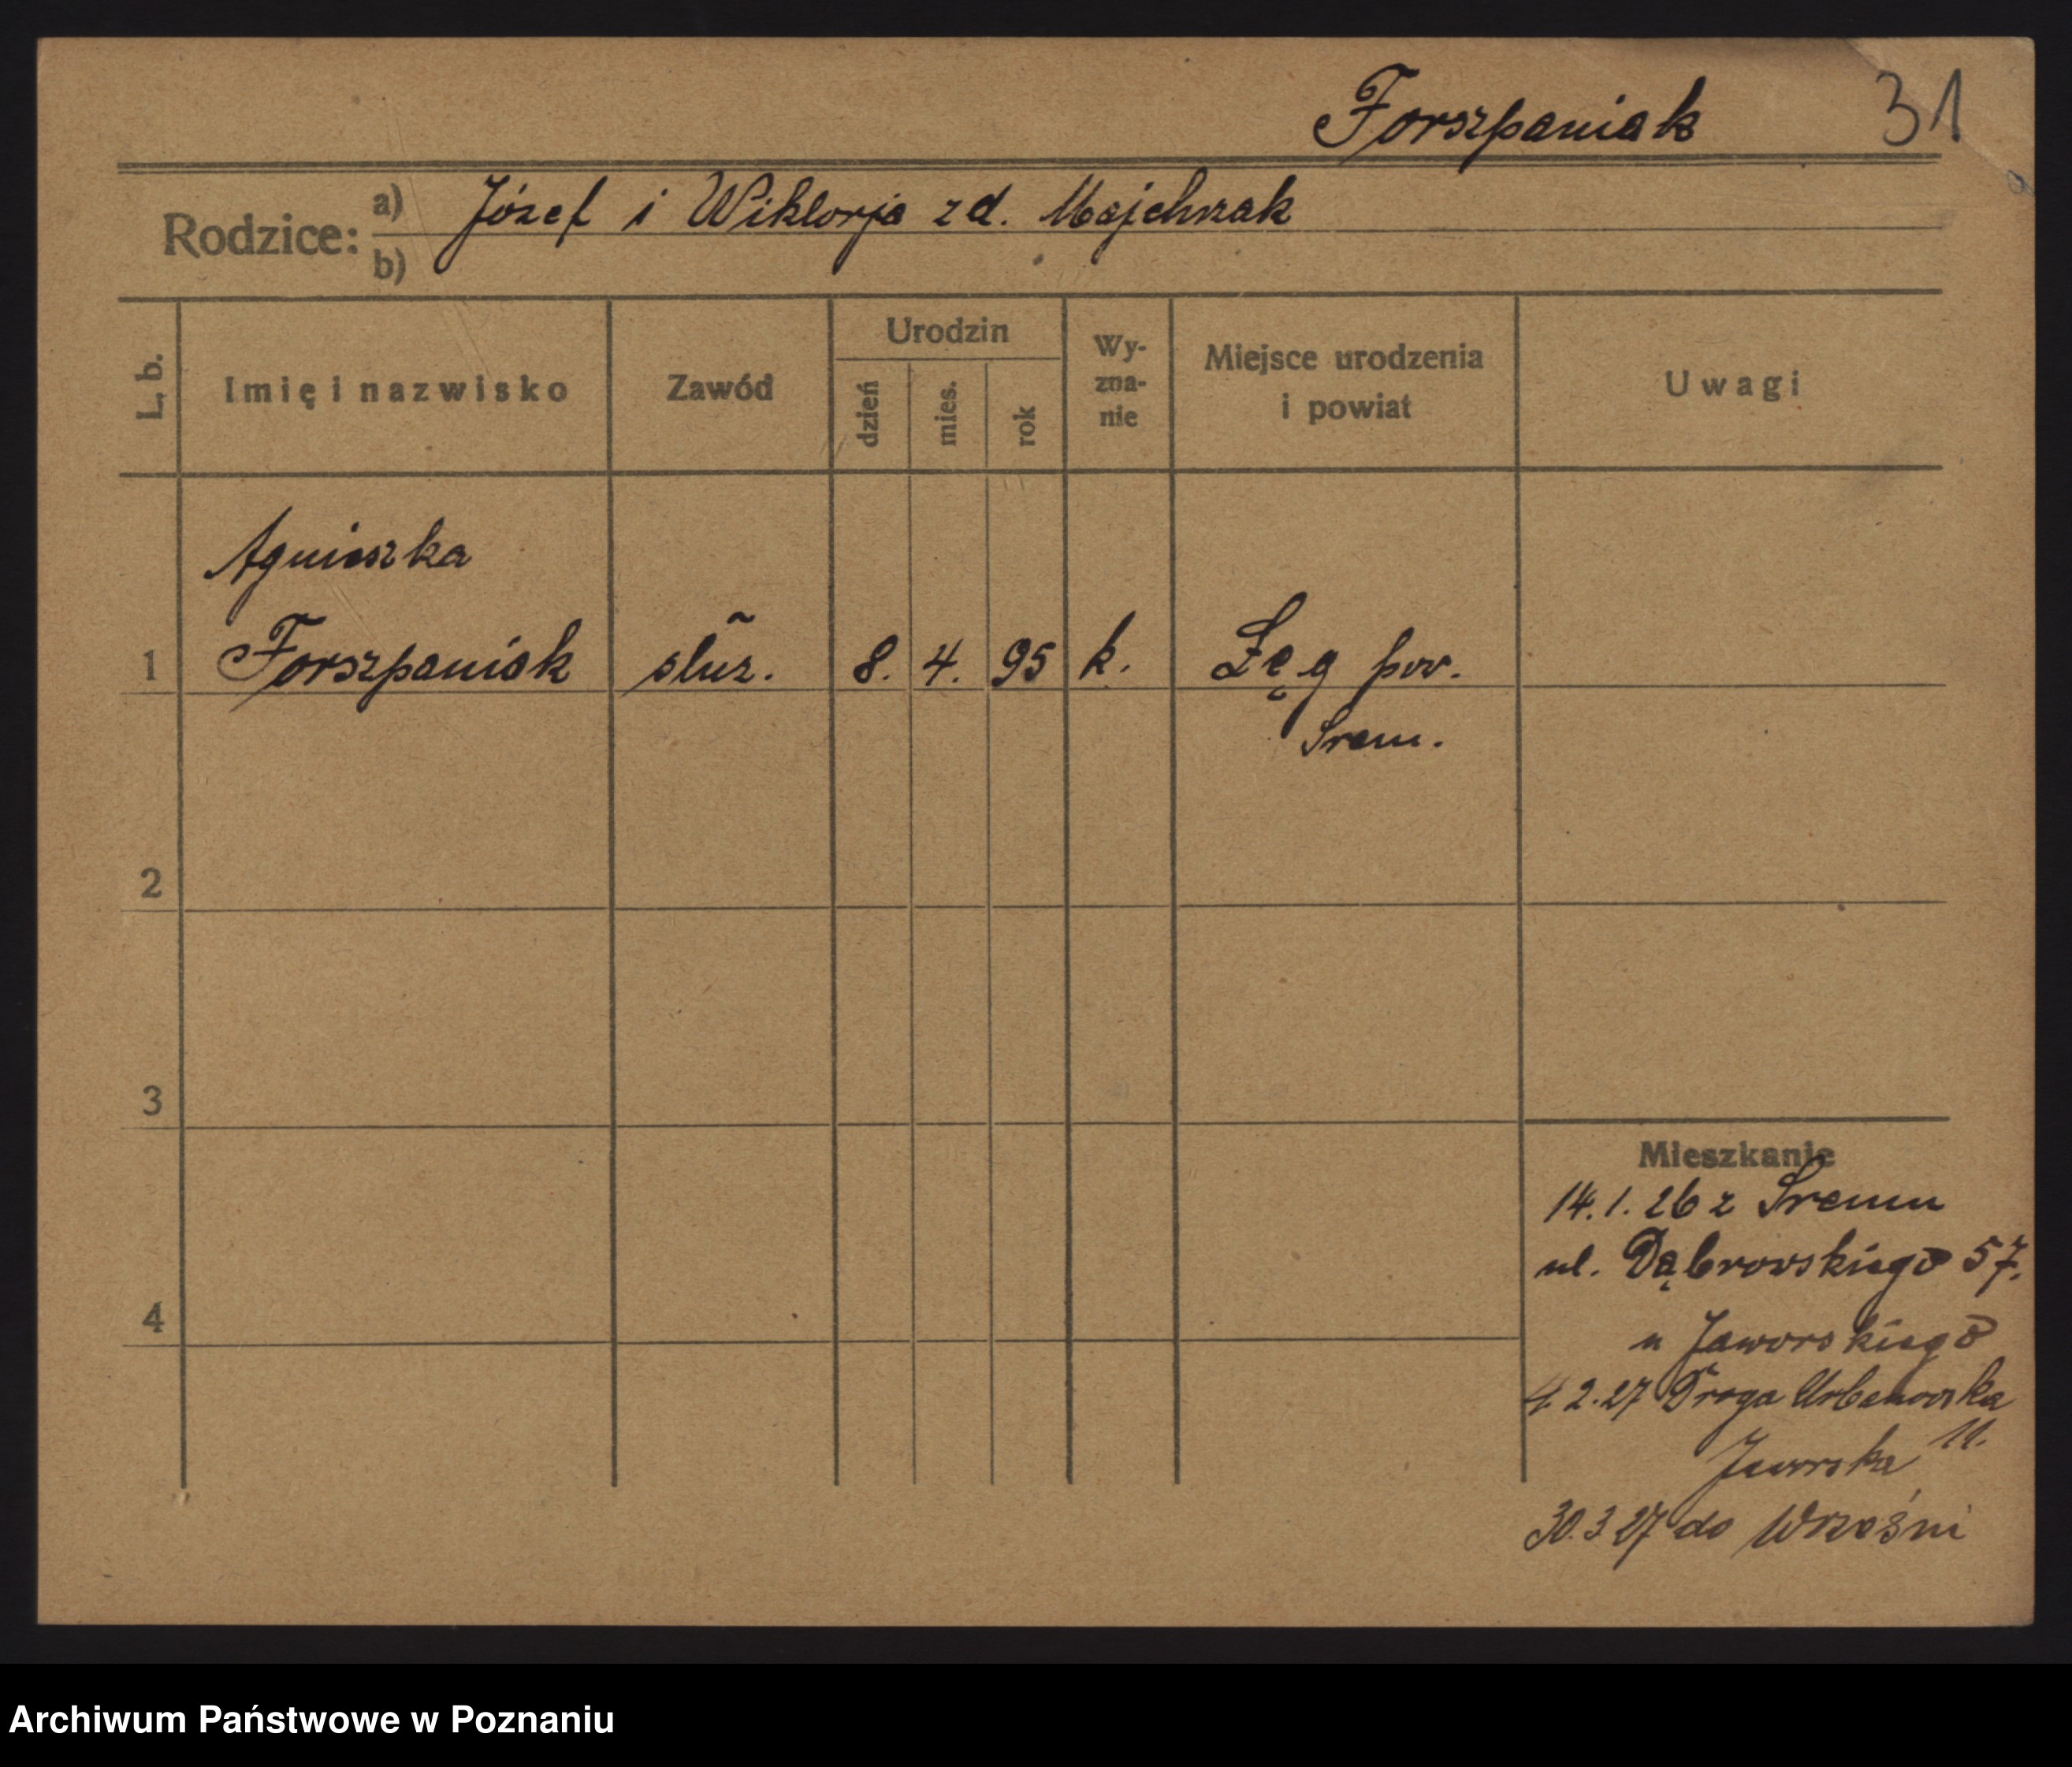 Forszpaniak 31
Rodzice: a) Józef i Wiktorja zd. Majchrzak
b)
L. b. Imię i nazwisko Zawód Urodzin dzień mies. rok Wy-zna-nie Miejsce urodzenia i powiat Uwagi
Agnieszka
1 Forszpaniak służ. 8. 4. 95 k. Łęg pow.
Śrem.
2
3
Mieszkanie
14.1.26 z Śremu
ul. Dąbrowskiego 57.
4
u Jaworskiego
4.2.27 Droga Urbanowska
11.
Jaworska
30.3 27 do Wrześni
Archiwum Państwowe w Poznaniu